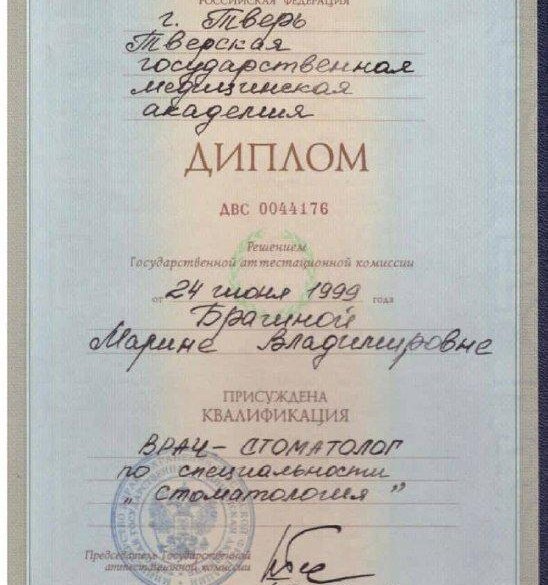 РОССИЙСКАЯ ФЕДЕРАЦИЯ
г. Тверь
Тверская
государственная
медицинская
академия
ДИПЛОМ
ДВС 0044176
Решением
Государственной аттестационной комиссии
от 24 июня 1999 года
Брагиной
Марине Владимировне
ПРИСУЖДЕНА
КВАЛИФИКАЦИЯ
ВРАЧ - СТОМАТОЛОГ
по специальности
„ Стоматология "
Председатель Государственной
аттестационной комиссии